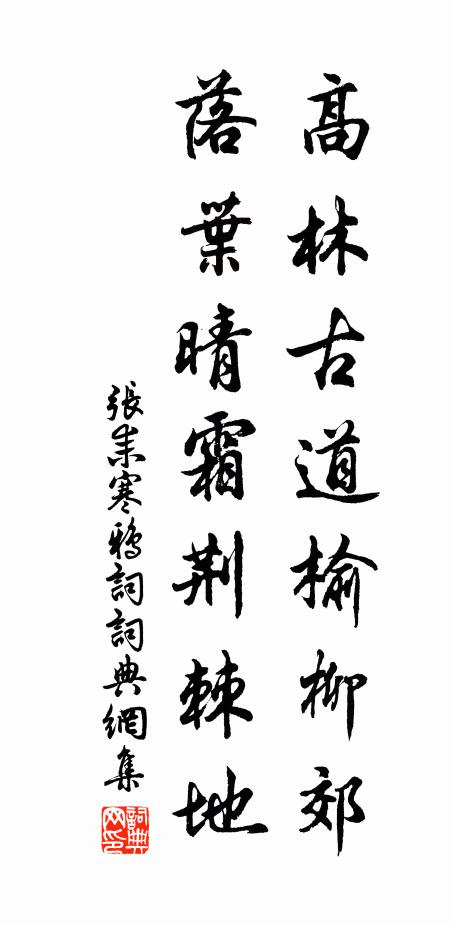 高林古道榆柳郊
落葉晴霜荆棘地
張耒寒鴉詞詞典網集
詞典網印